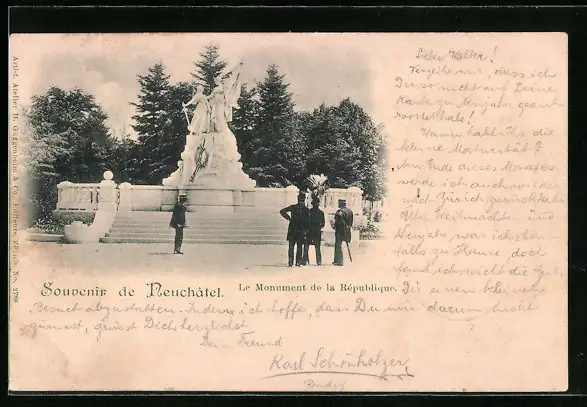 Lieber Walter!
Verzeih mir, dass ich
Dir so nicht auf Deine
Karte zu Neujahr geant-
wortet habe!
Wann habt Ihr die
kleine Maturität?
Am Ende dieses Monates
werde ich auch wieder
nach Zürich zurückkehren
Über Weihnachten und
Neujahr war ich eben-
falls zu Hause, doch
fand ich nicht die Zeit,
Dir einen kleinen
Besuch abzustatten. Indem ich hoffe, dass Du mir darum nicht
zürnest, grüsst Dich herzlichst
Dein Freund
Karl Schönholzer
Boudry
Souvenir de Neuchâtel.
Le Monument de la République.
Artist. Atelier H. Guggenheim & Co., Editeurs, Zürich. No.